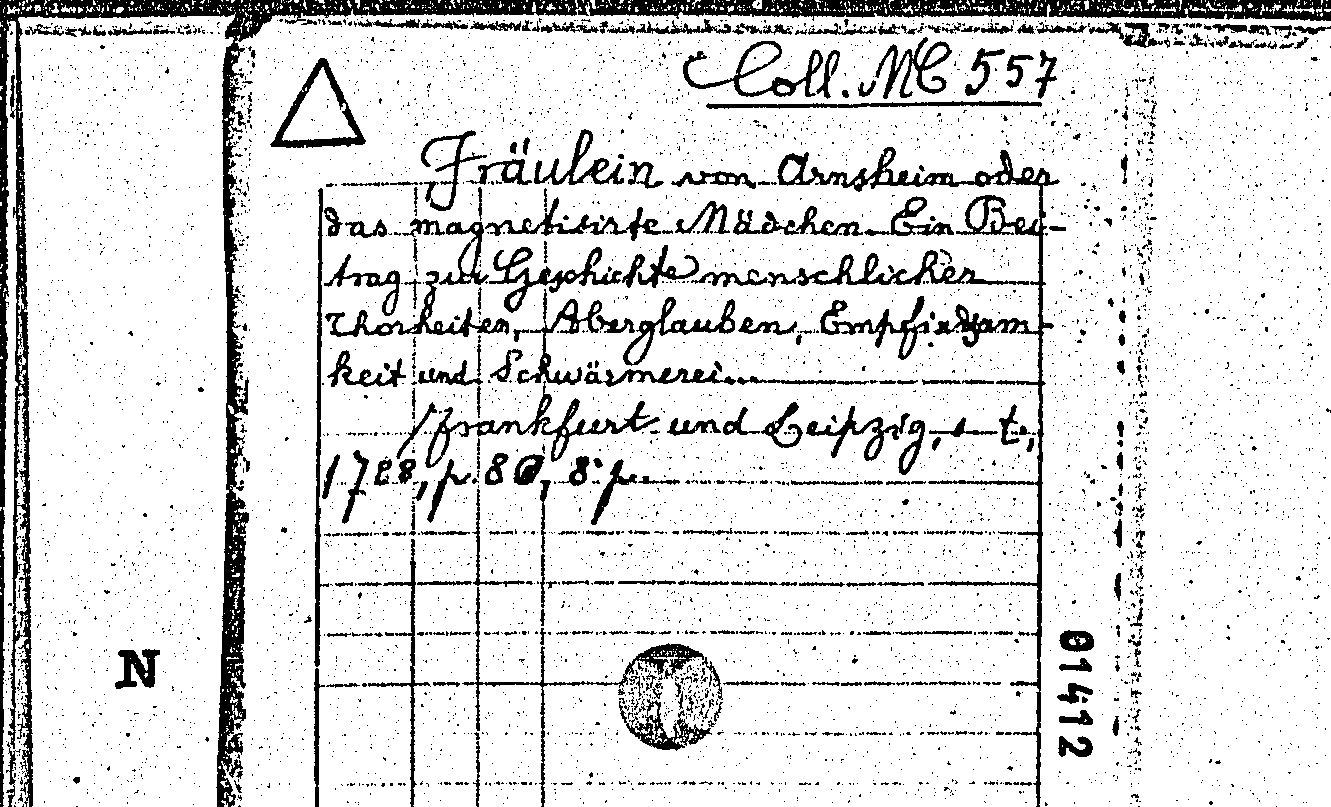 Coll. MC 557
Fräulein von Arnsheim oder
das magnetisirte Mädchen. Ein Bei-
trag zur Geschichte menschlicher
Thorheiten, Aberglauben, Empfindsam-
keit und Schwärmerei...
Frankfurt und Leipzig, s. t.,
1788, p. 80, 8° p.
N
01412